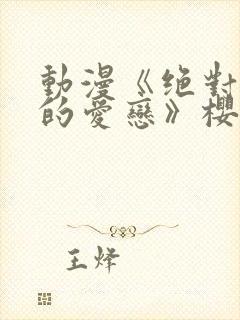 動漫《绝對
的愛戀》櫻
王烽